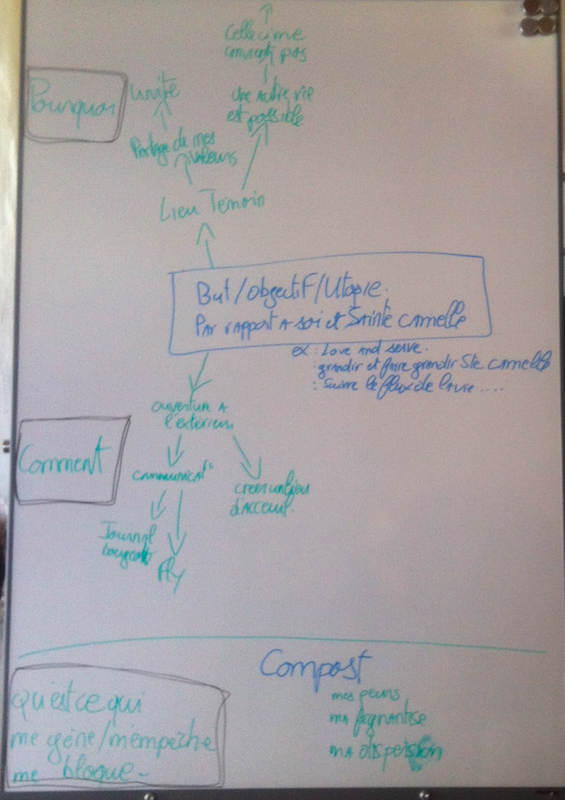 Celle ci me
convient pas
Pourquoi
unité
une autre vie
est possible
Partage de mes
valeurs
Lieu Témoin
But/objectif/Utopie.
Par rapport a soi et Sainte Camelle
ex : Love and serve.
: grandir et faire grandir Ste Camelle
: Suivre le flux de la vie....
ouverture a
l'extérieur
Comment
communicat°
creer un lieu
d'acceuil
Journal
Fly
Compost
qu'est ce qui
me gène/m'empèche
me bloque.
mes peurs
ma fegnantise
ma dispersion